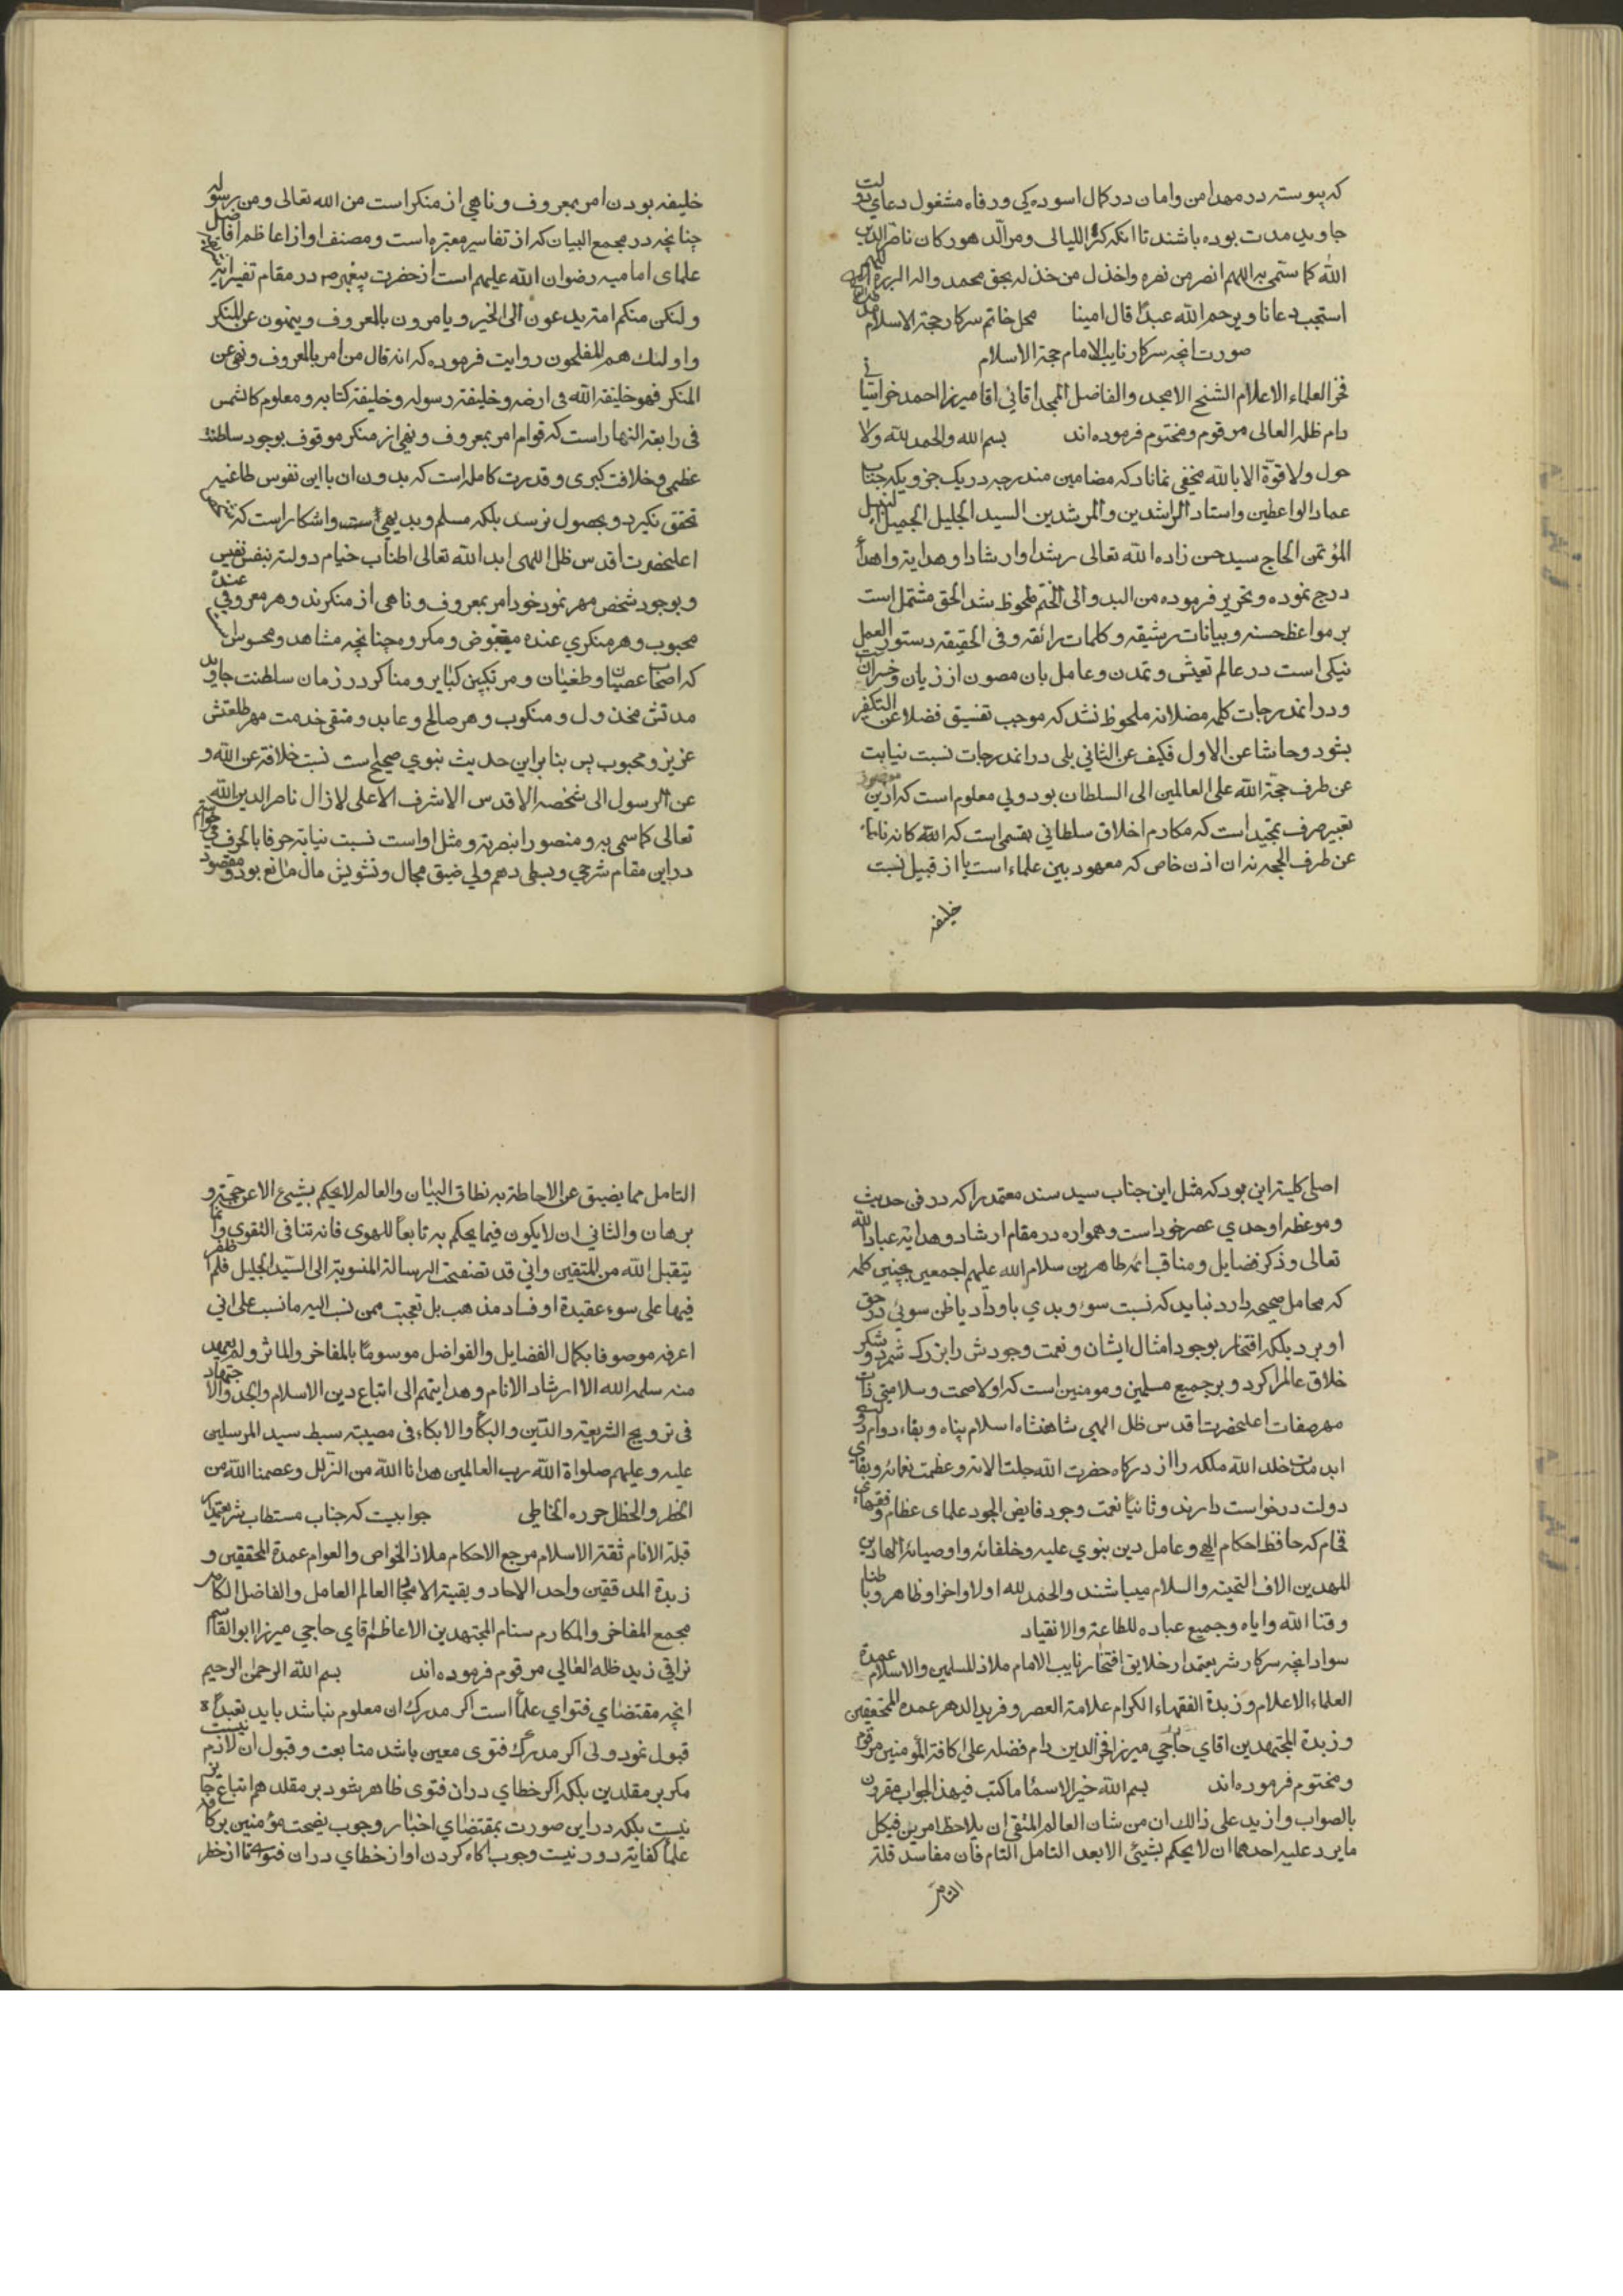 که پیوسته در مهد امن و امان در کمال اسوده کی و رفاه مشغول دعای دولت
جاوید مدت بوده باشند تا انکه کرّ اللیالی و مرّ الدهور کان ناصر الدین
الله کما ستمی به اللهم انصر من نصره واخذل من خذله بحق محمد واله البررة
استجب دعانا ویرحم الله عبدًا قال امینا محل خاتم سرکار حجة الاسلام
صورت انچه سرکار نایب الامام حجة الاسلام
فخر العلماء الاعلام الشیخ الامجد والفاضل الممجد اقائی اقا میرزا احمد خراسانی
دام ظله العالی مرقوم و مختوم فرموده اند بسم الله والحمد لله ولا
حول ولا قوّة الا بالله مخفی نماناد که مضامین مندرجه در یک جزویکه جناب
عماد الواعظین واستاد الراشدین والمرشدین السید الجلیل الجمیل النبیل
المؤتمن الحاج سید حسن زاده الله تعالی رشدا وارشادا وهدایة واهداءً
درج نموده و تحریر فرموده من البدو الی الختم ملحوظ شد الحق مشتمل است
بر مواعظ حسنه و بیانات رشیقه و کلمات رائقه و فی الحقیقه دستور العمل
نیکی است در عالم تعیش و تمدن و عامل بان مصون از زیان و خسران
و در اندرجات کلمه مضلانه ملحوظ نشد که موجب تفسیق فضلا عن التکفیر
بشود و حاشا عن الاول فکیف عن الثانی بلی در اندرجات نسبت نیابت
عن طرف حجة الله علی العالمین الی السلطان بود ولی معلوم است که از این
تعبیر صرف تمجید است که مکارم اخلاق سلطانی بقسمی است که الله کانه نایباً
عن طرف الحجه نه ان اذن خاص که معهود بین علماء است یا از قبیل نسبت
خلیفه
خلیفه بودن امر بمعروف و ناهی از منکر است من الله تعالی و من رسوله
چنانچه در مجمع البیان که از تفاسیر معتبره است و مصنف او از اعاظم افاضل
علمای امامیه رضوان الله علیهم است از حضرت پیغمبر ص در مقام تفسیر ایة
ولتکن منکم امة یدعون الی الخیر ویامرون بالمعروف وینهون عن المنکر
واولئک هم المفلحون روایت فرموده که انه قال من امر بالمعروف ونهی عن
المنکر فهو خلیفة الله فی ارضه وخلیفة رسوله وخلیفة کتابه ومعلوم کالشمس
فی رابعة النهار است که قوام امر بمعروف و نهی از منکر موقوف بوجود سلطنت
عظمی و خلافت کبری و قدرت کامله است که بدون ان با این نفوس طاغیه
تحقق نگیرد و بحصول نرسد بلکه مسلم و بدیهی است و اشکار است که
اعلیحضرت اقدس ظل اللهی ابد الله تعالی اطناب خیام دولته بنفس نفیس
و بوجود شخص مهر نمود خود امر بمعروف و ناهی از منکرند و هر معروفی عنده
محبوب و هر منکری عنده مبغوض و مکروه چنانچه مشاهد و محسوس
که اصحاب عصیان و طغیان و مرتکبین کبایر و مناکر در زمان سلطنت جاوید
مدتش مخذول و منکوب و هر صالح و عابد و متقی خدمت مهر طلعتش
عزیز و محبوب پس بنا بر این حدیث نبوی صحیح است نسبت خلافة عن الله و
عن الرسول الی شخصه الاقدس الاشرف الاعلی لازال ناصر الدین الله
تعالی کما سمی به و منصورا بنصرته و مثل او است نسبت نیابة حرفا بالحرف
در این مقام شرحی و بسطی دهم ولی ضیق مجال و تشویش مال مانع بود و مقصود
اصلی کلیة این بود که مثل این جناب سید سند معتمد را که در فن حدیث
و موعظه اوحدی عصر خود است و همواره در مقام ارشاد و هدایة عباد الله
تعالی و ذکر فضایل و مناقب ائمه طاهرین سلام الله علیهم اجمعین بچنین کلمه
که محامل صحیحه دارد نباید که نسبت سوء و بدی باو داد یا ظن سوئی در حق
او برد بلکه افتخار بوجود امثال ایشان و نعمت وجودش را بزرک شمرد و شکر
خلاق عالم را کرد و بر جمیع مسلمین و مومنین است که اولا صحت و سلامتی ذات
مهر صفات اعلیحضرت اقدس ظل الهی شاهنشاه اسلام پناه و بقاء دوام
ابد مدت خلد الله ملکه را از درکاه حضرت الله جلت الائه و عظمت نعمائه و بقای
دولت درخواست دارند و ثانیًا نعمت وجود فایض الجود علمای عظام و فقهاء
فخام که حافظ احکام الهی و عامل دین نبوی علیه وخلفائه واوصیائه الهادین
المهدین الاف التحیة والسلام میباشند والحمد لله اولا واخرا وظاهرا وباطنا
وفقنا الله وایاه وجمیع عباده للطاعة والانقیاد
سواد انچه سرکار شریعتمدار خلایق افتخار نایب الامام ملاذ المسلمین والاسلام عمدة
العلماء الاعلام وزبدة الفقهاء الکرام علامة العصر وفرید الدهر عمدة المحققین
وزبدة المجتهدین اقای حاجی میرزا فخر الدین دام فضله علی کافة المؤمنین مرقوم
و مختوم فرموده اند بسم الله خیر الاسماء ما کتب فیهذا الجواب مقرون
بالصواب وازید علی ذالک ان من شان العالم المتقی ان یلاحظ امرین فی کل
ما یرد علیه احدهما ان لا یحکم بشیئ الا بعد التامل التام فان مفاسد قلة
التامل
التامل مما یضیق عن الاحاطة به نطاق البیان والعالم لا یحکم بشیئ الا عن حجة و
برهان والثانی ان لا یکون فیما یحکم به تابعا للهوی فانه تنافی التقوی وانما
یتقبل الله من المتقین وانی قد تصفحت الرسالة المنسوبة الی السید الجلیل فلم اظفر
فیها علی سوء عقیدة او فساد مذهب بل تعجبت ممن نسب الیه ما نسب علی انی
اعرفه موصوفا بکمال الفضایل والفواضل موسومًا بالمفاخر والماثر ولم یعهد
منه سلمه الله الا ارشاد الانام وهدایتهم الی اتباع دین الاسلام والجد والاجتهاد
فی ترویج الشریعة والدین والبکاء والابکاء فی مصیبة سبط سید المرسلین
علیه وعلیهم صلواة الله رب العالمین هدانا الله من الزلل وعصمنا الله من
الخطر والخطل حرره الخاطی جوابیست که جناب مستطاب شریعتمدار
قبلة الانام ثقة الاسلام مرجع الاحکام ملاذ الخواص والعوام عمدة المحققین و
زبدة المدققین واحد الاحاد وبقیة الامجاد العالم العامل والفاضل الکامل
مجمع المفاخر والمکارم سنام المجتهدین الاعاظم اقای حاجی میرزا ابوالقاسم
نراقی زید ظله العالی مرقوم فرموده اند بسم الله الرحمن الرحیم
انچه مقتضای فتوای علماء است اکر مدرک ان معلوم نباشد باید تعبدًا
قبول نمود ولی اکر مدرک فتوی معین باشد متابعت و قبول ان لازم نیست
مکر بر مقلدین بلکه اکر خطای در ان فتوی ظاهر شود بر مقلد هم اتباع جایز
نیست بلکه در این صورت بمقتضای اخبار وجوب نصیحت مؤمنین بر کافه
علماء کفایة دور نیست وجوب اکاه کردن او از خطای در ان فتوی تا از خطر